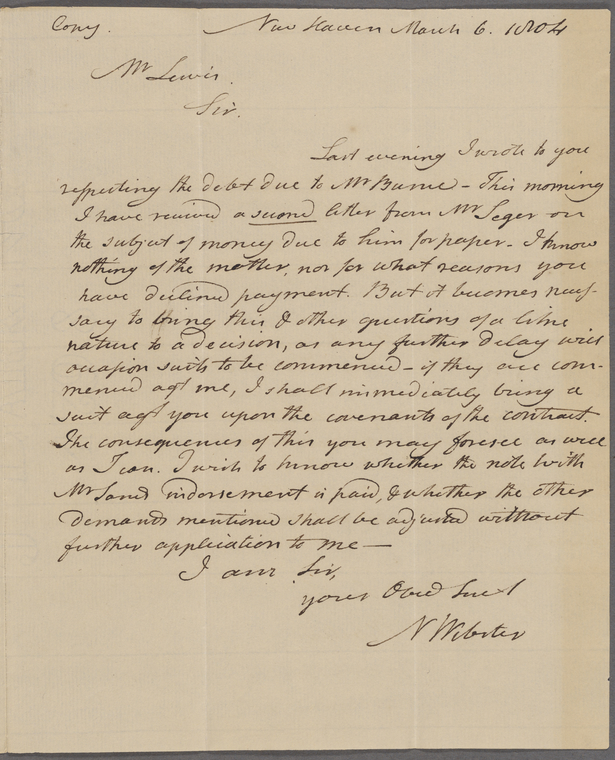 Copy.
New Haven March 6. 1804
Mr Lewis.
Sir.
Last evening I wrote to you
respecting the debt due to Mr Burne - This morning
I have received a second letter from Mr Seger on
the subject of money due to him for paper - I know
nothing of the matter, nor for what reasons you
have declined payment. But it becomes neces-
sary to bring this & other questions of a like
nature to a decision, as any further delay will
occasion suits to be commenced - if they are com-
menced agt me, I shall immediately bring a
suit agt you upon the covenants of the contract.
The consequences of this you may foresee as well
as I can. I wish to know whether the note with
Mr Sands indorsement is paid, & whether the other
demands mentioned shall be adjusted without
further application to me —
I am Sir,
your Obed Servt
N Webster